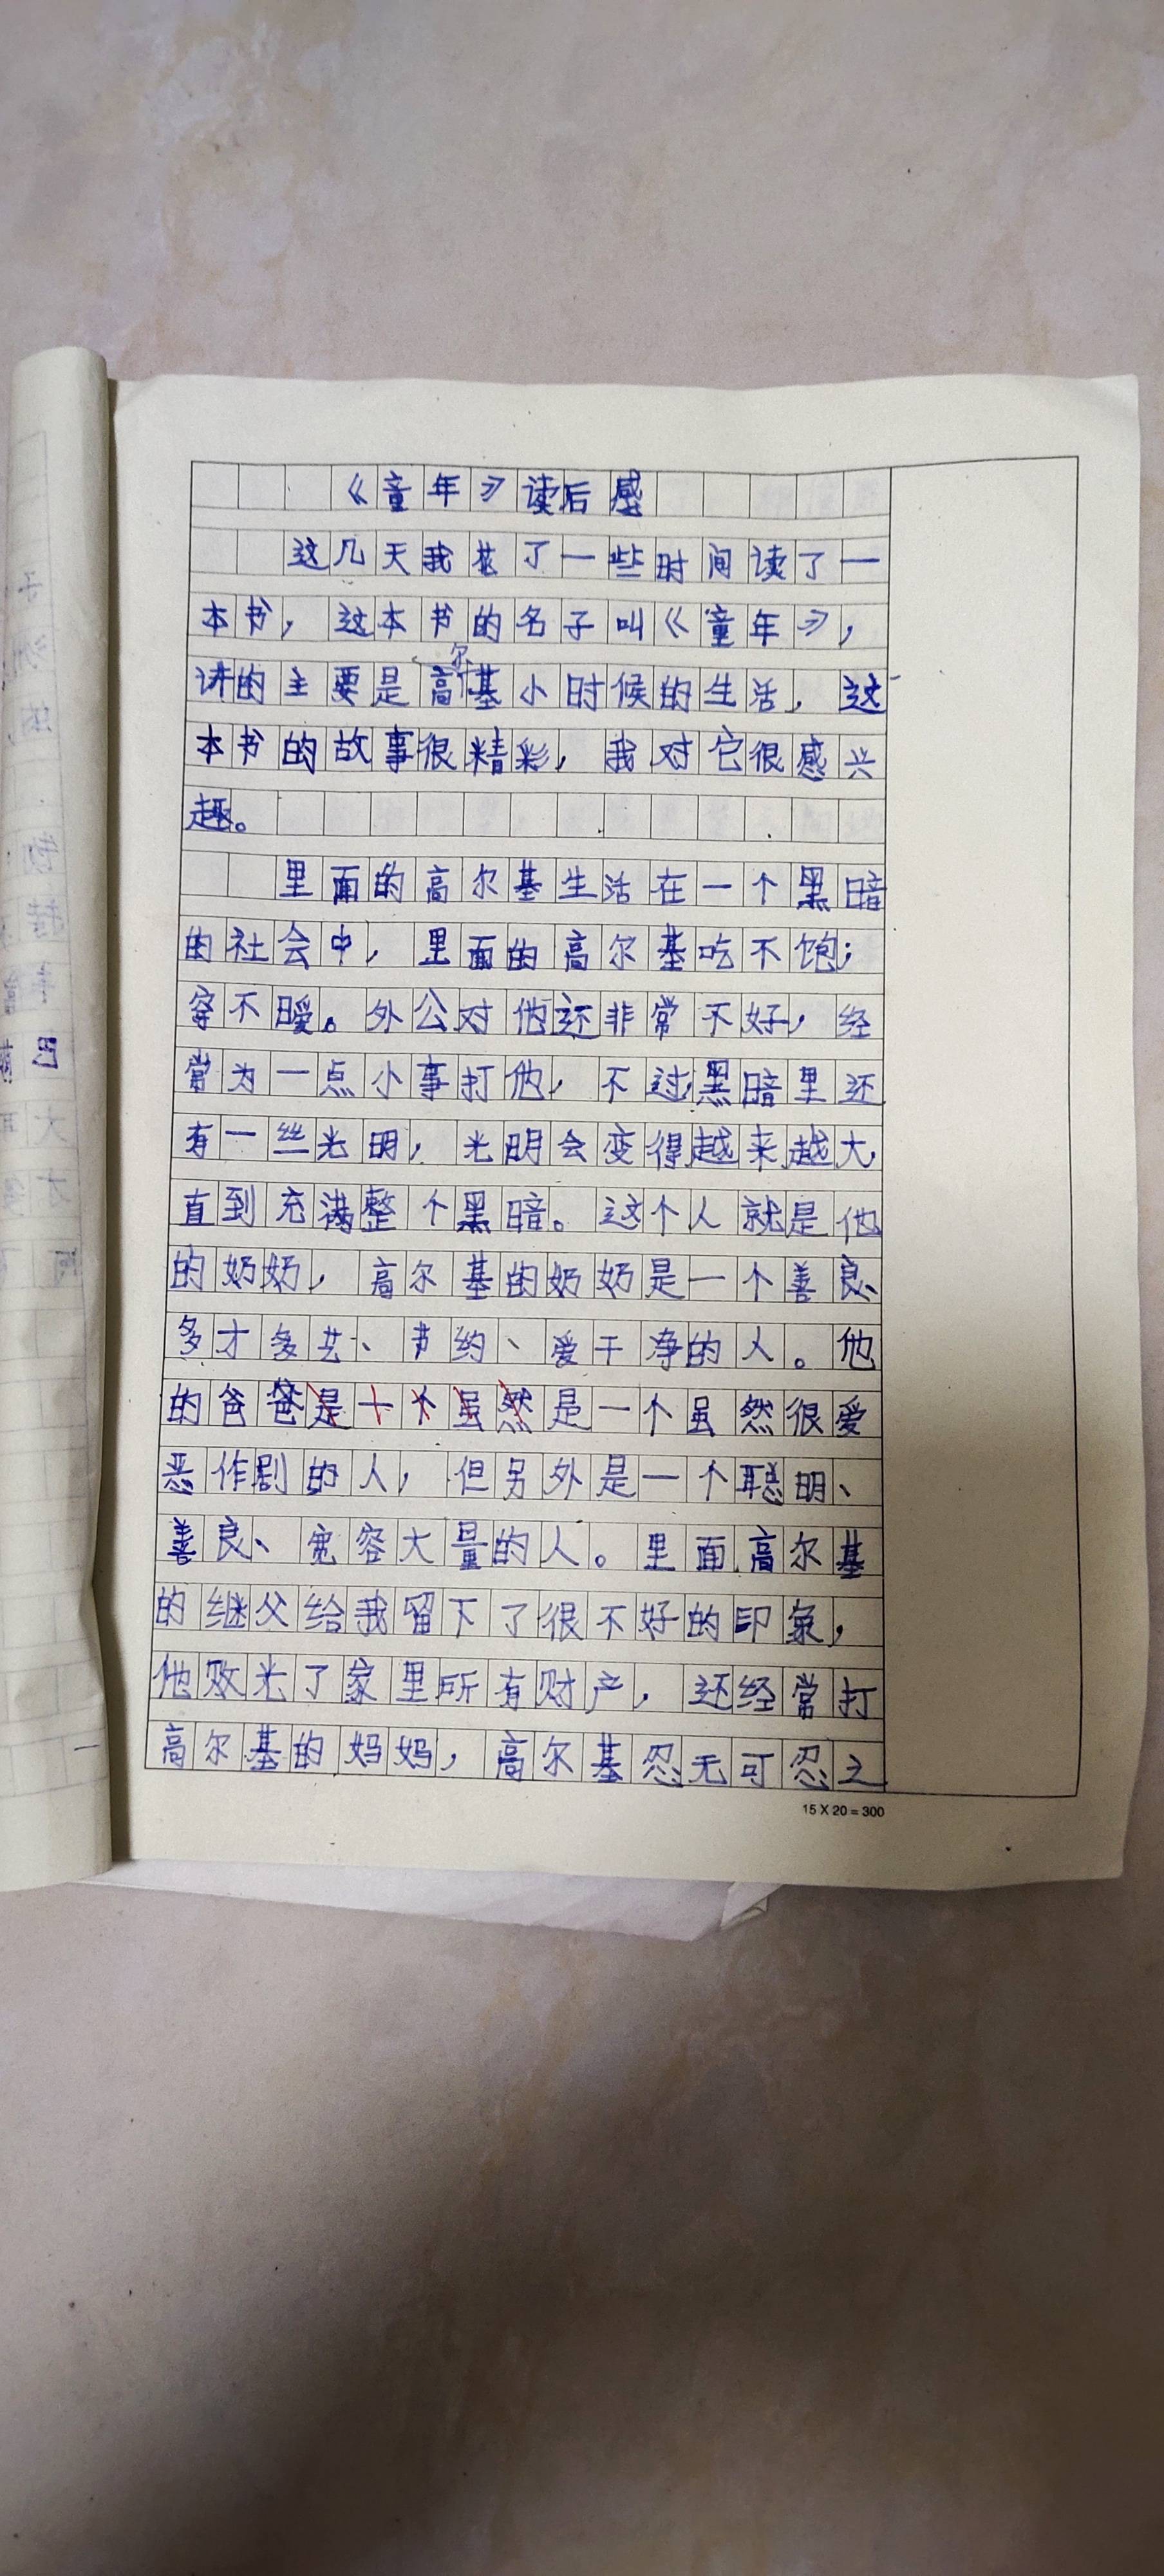 《童年》读后感
这几天我花了一些时间读了一
本书，这本书的名子叫《童年》，
讲的主要是高尔基小时候的生活，这
本书的故事很精彩，我对它很感兴
趣。
里面的高尔基生活在一个黑暗
的社会中，里面的高尔基吃不饱；
穿不暖。外公对他还非常不好，经
常为一点小事打他，不过黑暗里还
有一丝光明，光明会变得越来越大，
直到充满整个黑暗。这个人就是他
的奶奶，高尔基的奶奶是一个善良、
多才多艺、节约、爱干净的人。他
的爸爸是一个虽然是一个虽然很爱
恶作剧的人，但另外是一个聪明、
善良、宽容大量的人。里面高尔基
的继父给我留下了很不好的印象，
他败光了家里所有财产，还经常打
高尔基的妈妈，高尔基忍无可忍之
15 X 20 = 300